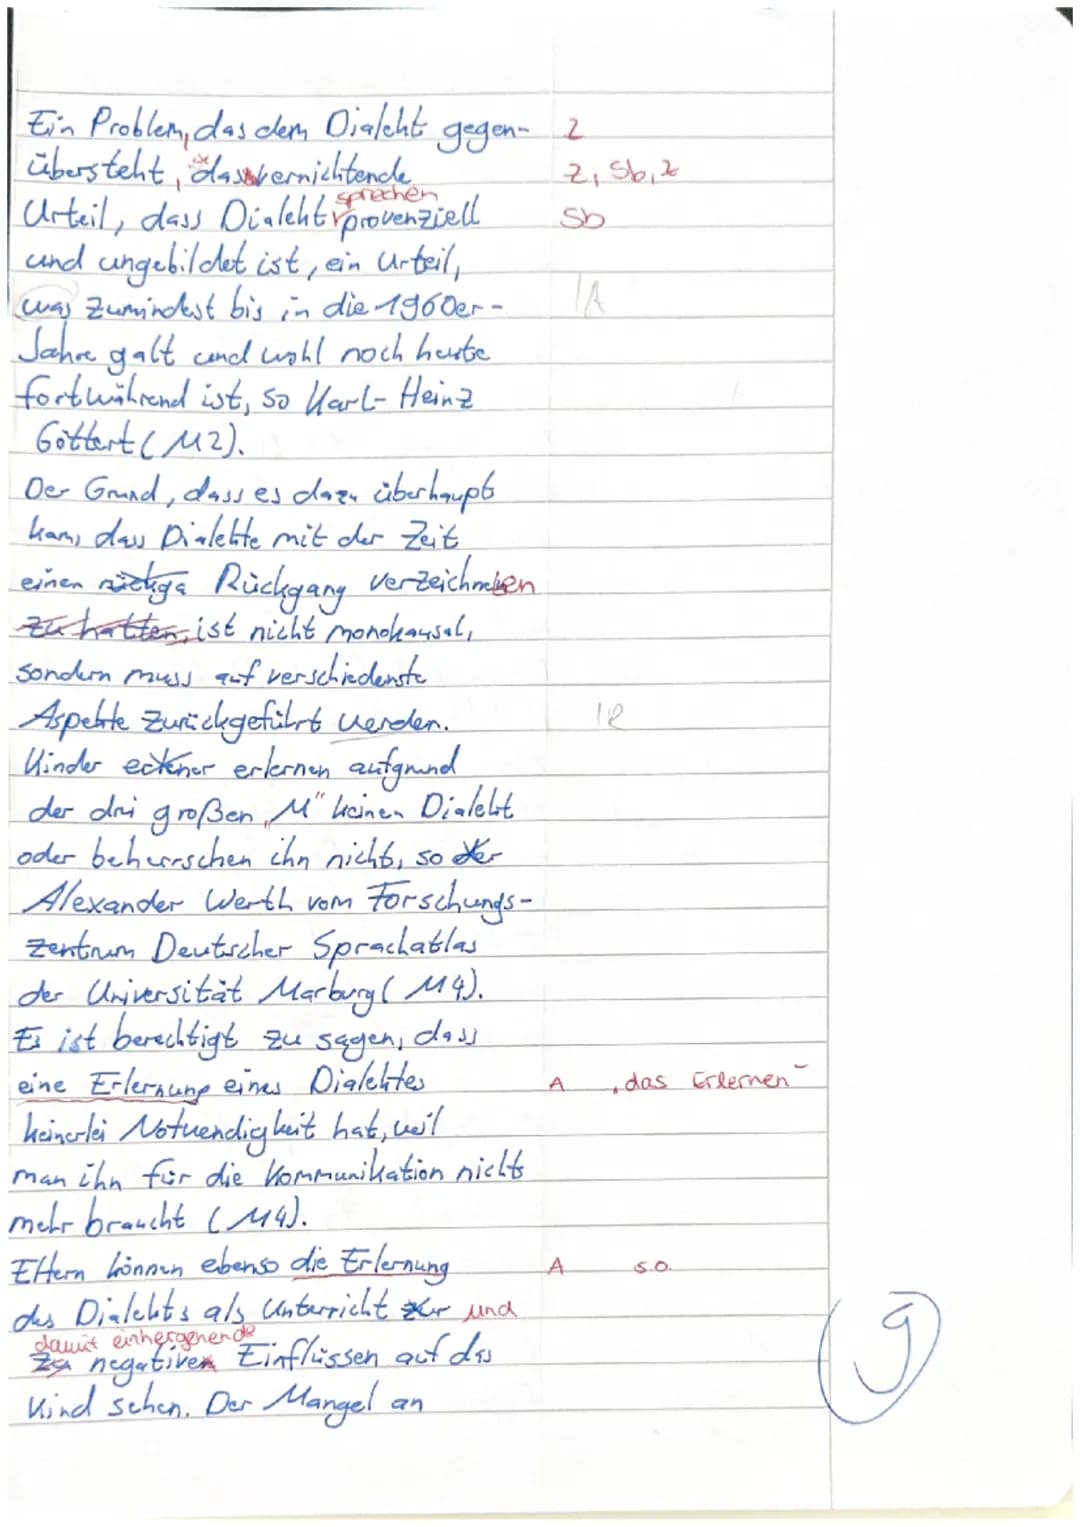 Ein Problem, das dem Dialekt gegen- Z
übersteht, das vernichtende Z, Sb, Z
sprechen
Urteil, dass Dialekt provenziell Sb
und ungebildet ist, ein Urteil,
was zumindest bis in die 1960er- A
Jahre galt und wohl noch heute
fortwährend ist, so Karl-Heinz
Göttert (M2).
Der Grund, dass es dazu überhaupt
kam, dass Dialekte mit der Zeit
einen Rückgang verzeichneten
zu hatten, ist nicht monokausal,
sondern muss auf verschiedenste
Aspekte zurückgeführt werden. R
Kinder erlernen aufgrund
der drei großen „M" keinen Dialekt
oder beherrschen ihn nicht, so
Alexander Werth vom Forschungs-
zentrum Deutscher Sprachatlas
der Universität Marburg (M4).
Es ist berechtigt zu sagen, dass
eine Erlernung eines Dialektes A „das Erlernen"
keinerlei Notwendigkeit hat, weil
man ihn für die Kommunikation nicht
mehr braucht (M4).
Eltern können ebenso die Erlernung A s.o.
des Dialekts als Unterricht und
damit einhergehende
negativen Einflüssen auf das
Kind sehen. Der Mangel an
9